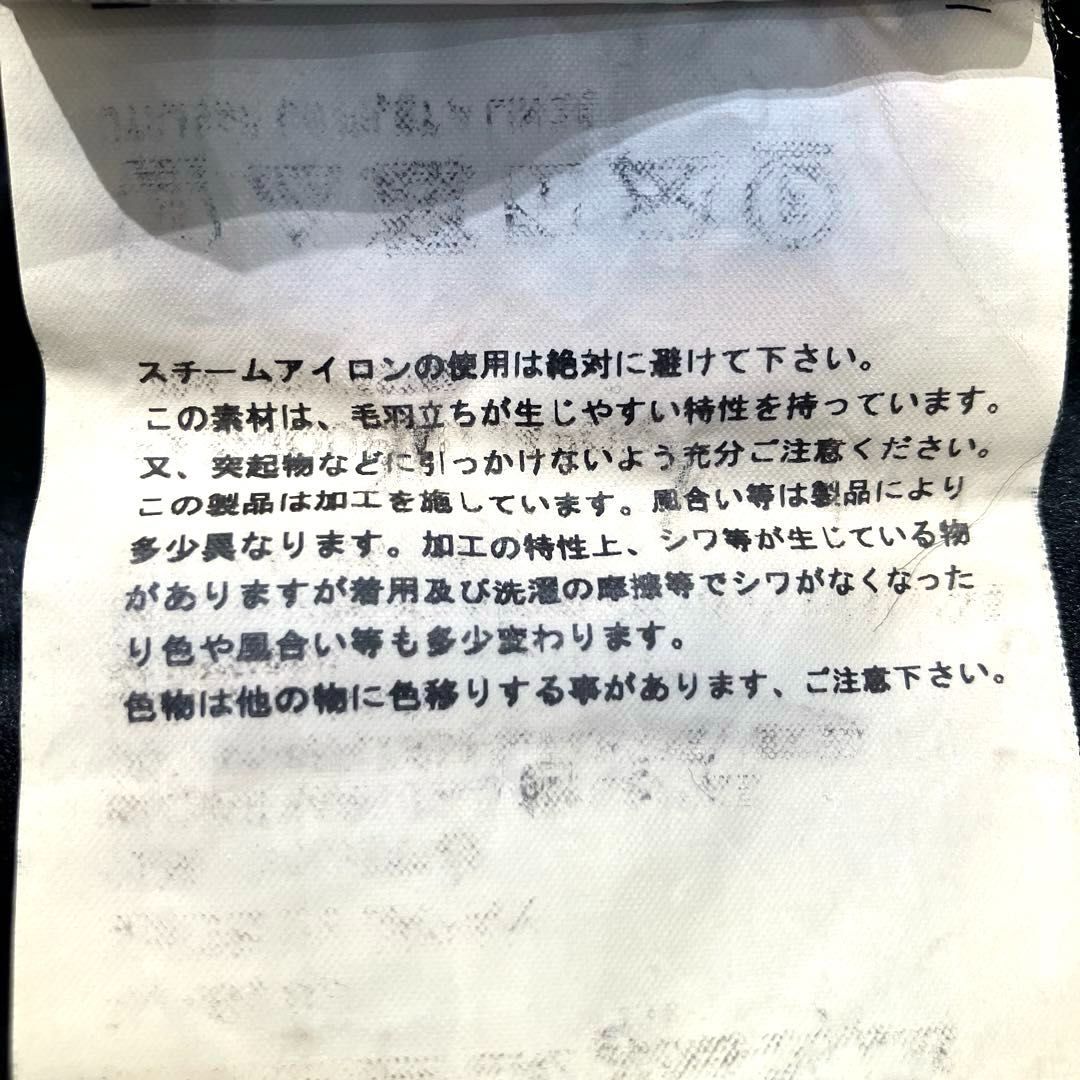 スチームアイロンの使用は絶対に避けて下さい。
この素材は、毛羽立ちが生じやすい特性を持っています。
又、突起物などに引っかけないよう充分ご注意ください。
この製品は加工を施しています。風合い等は製品により
多少異なります。加工の特性上、シワ等が生じている物
がありますが着用及び洗濯の摩擦等でシワがなくなった
り色や風合い等も多少変わります。
色物は他の物に色移りする事があります、ご注意下さい。